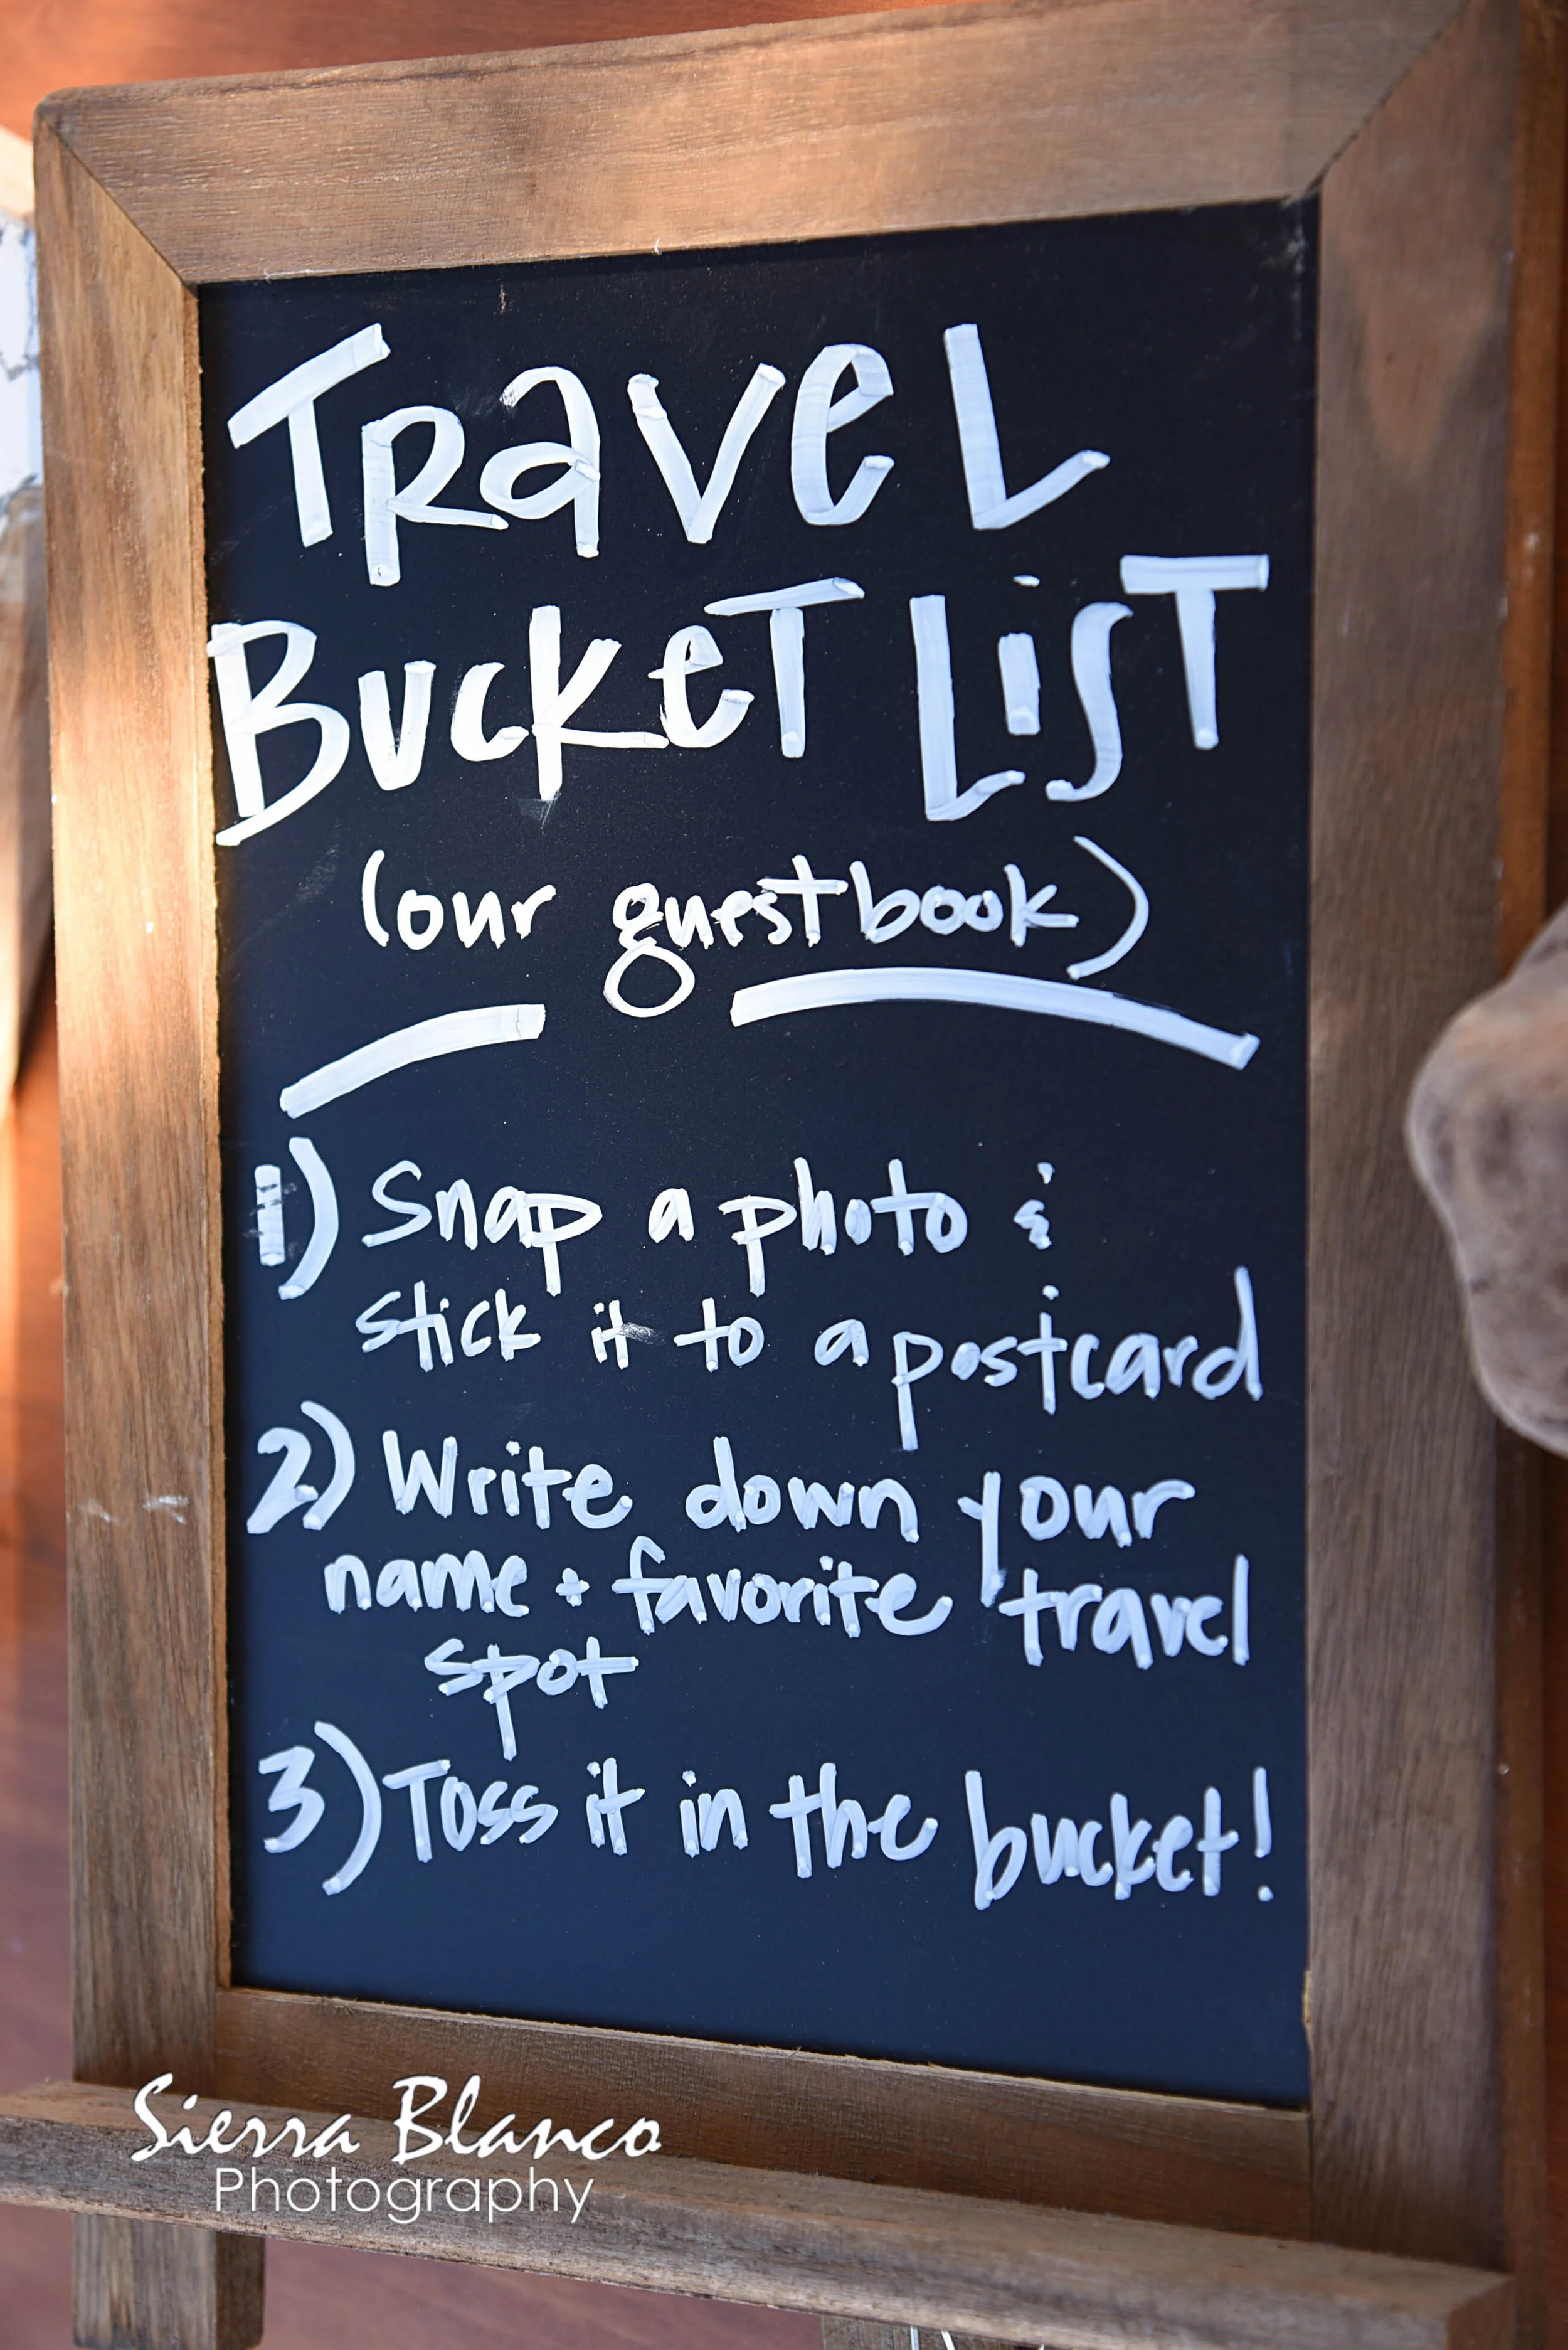 Travel
Bucket List
(our guestbook)
1) Snap a photo &
stick it to a postcard
2) Write down your
name + favorite travel
spot
3) Toss it in the bucket!
Sierra Blanco
Photography